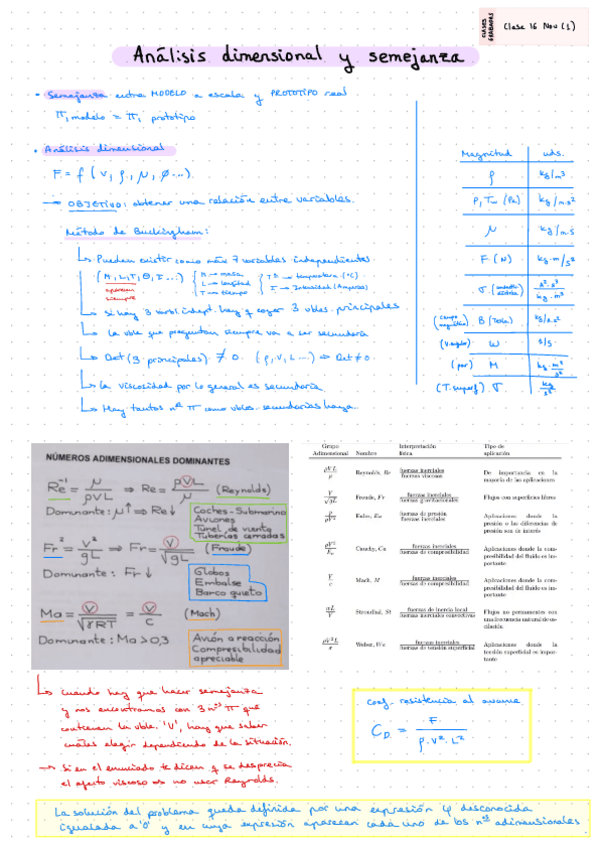 CLASES GRABADAS
Clase 16 Nov (1)
Análisis dimensional y semejanza
• Semejanza entre MODELO a escala y PROTOTIPO real
π₁ modelo = π₁ prototipo
• Análisis dimensional
F = f (v, ρ, μ, φ ...).
→ OBJETIVO: obtener una relación entre variables.
Método de Buckingham:
↳ Pueden existir como máx 7 variables independientes
(M, L, T, θ, I ...)
aparecen siempre
M → masa
L → longitud
T → tiempo
TD → temperatura (ºC)
I → Intensidad (Amperios)
↳ si hay 3 varbl. indept. hay q coger 3 vbles. principales
↳ la vble que preguntan siempre va a ser secundaria
↳ Det (3 principales) ≠ 0. (ρ, V, L ...) ⇒ Det ≠ 0.
↳ la viscosidad por lo general es secundaria
↳ Hay tantos nºs π como vbles. secundarias haya.
Magnitud uds.
ρ kg/m³
P, Tw (Pa) kg/m·s²
μ kg/m·s
F (N) kg·m/s²
(campo magnético) B (Tesla) kg/A·s²
(V. angular) ω
(par) M kg·m²/s²
(T. superf) σ kg/s²
NÚMEROS ADIMENSIONALES DOMINANTES
Re⁻¹ = μ/ρVL ⇒ Re = ρVL/μ (Reynolds)
Dominante: μ↑ ⇒ Re↓
Coches - Submarino
Aviones
Tunel de viento
Tuberías cerradas
Fr² = V²/gL ⇒ Fr = V/√gL (Froude)
Dominante: Fr↓
Globos
Embalse
Barco quieto
Ma = V/√γRT = V/c (Mach)
Dominante: Ma > 0,3
Avión a reacción
Compresibilidad apreciable
Grupo Adimensional Nombre Interpretación física Tipo de aplicación
ρVL/μ Reynolds, Re fuerzas inerciales/fuerzas viscosas De importancia en la mayoría de las aplicaciones
V/√gL Froude, Fr fuerzas inerciales/fuerzas gravitacionales Flujos con superficies libres
p/ρV² Euler, Eu fuerzas de presión/fuerzas inerciales Aplicaciones donde la presión o las diferencias de presión son de interés
ρV²/Ev Cauchy, Ca fuerzas inerciales/fuerzas de compresibilidad Aplicaciones donde la compresibilidad del fluido es importante
V/c Mach, M fuerzas inerciales/fuerzas de compresibilidad Aplicaciones donde la compresibilidad del fluido es importante
ωL/V Strouhal, St fuerzas de inercia local/fuerzas inerciales convectivas Flujos no permanentes con una frecuencia natural de oscilación
ρV²L/σ Weber, We fuerzas inerciales/fuerzas de tensión superficial Aplicaciones donde la tensión superficial es importante
↳ cuando hay que hacer semejanza
y nos encontramos con 3 nºs π que
contienen la vble. 'V', hay que saber
cuáles elegir dependiendo de la situación.
→ Si en el enunciado te dicen q se desprecia
el efecto viscoso es no usar Reynolds.
coef. resistencia al avance
C_D = F/ρ·V²·L²
La solución del problema queda definida por una expresión φ desconocida
igualada a '0' y en cuya expresión aparecen cada uno de los nºs adimensionales